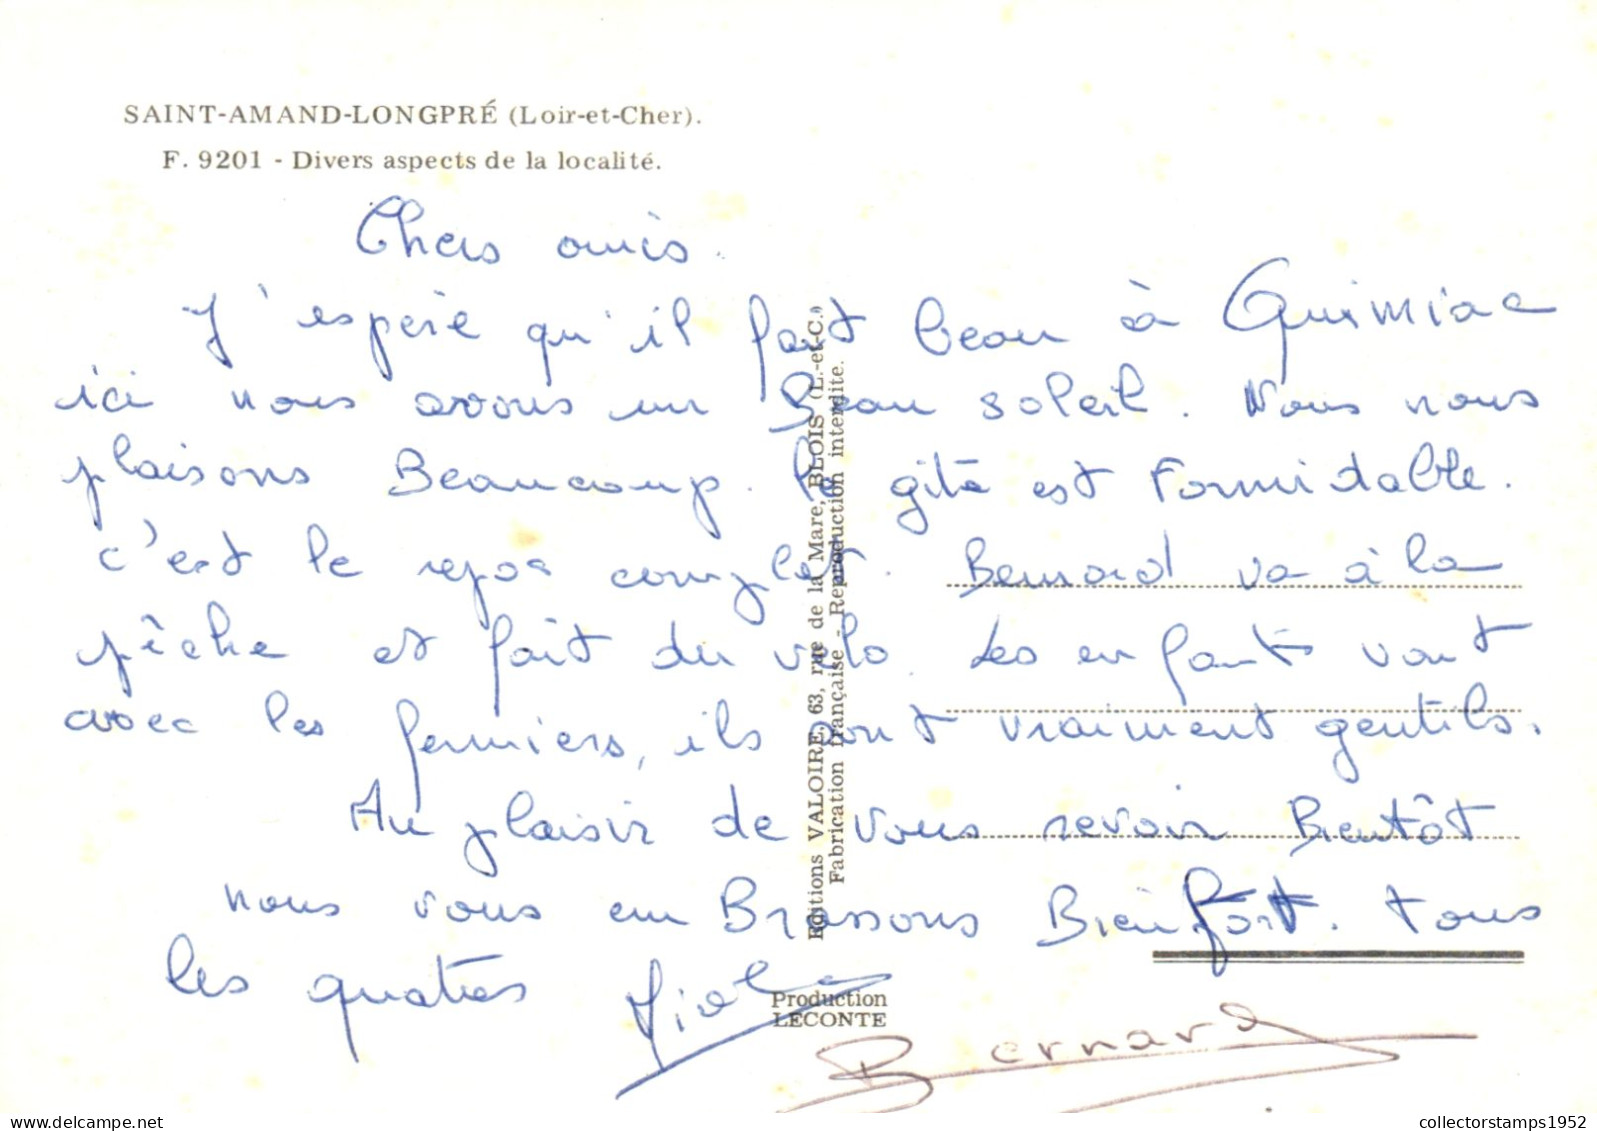 SAINT-AMAND-LONGPRÉ (Loir-et-Cher).
F. 9201 - Divers aspects de la localité.
Chers amis.
J'espère qu'il fait beau à Quimiac
ici nous avons un Beau soleil. Nous nous
plaisons Beaucoup. le gîte est Formidable.
c'est le repos complet. Bernard va à la
pêche et fait du vélo. Les enfants vont
avec les fermiers, ils sont vraiment gentils.
Au plaisir de vous revoir Bientôt
nous vous embrassons Bien fort. tous
les quatres
Bernard
Editions VALOIRE, 63, rue de la Mare, BLOIS (L.-et-C.)
Fabrication française - Reproduction interdite.
Production
LECONTE
collectorstamps1952